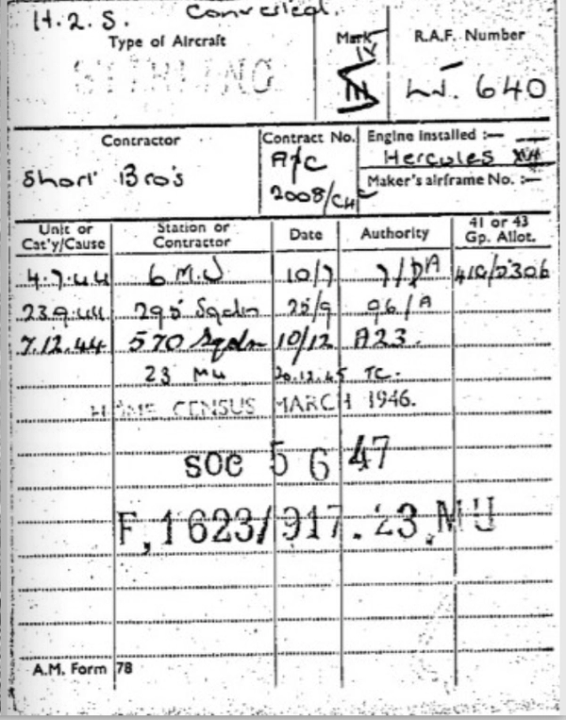 H.2.S. Converted.
Type of Aircraft
Mark
R.A.F. Number
STIRLING
IV
III
LJ. 640
Contractor
Contract No.
Engine installed :—
Short Bro's
A/C
2008/CH
Hercules XVI
Maker's airframe No. :—
Unit or Cat'y/Cause
Station or Contractor
Date
Authority
41 or 43 Gp. Allot.
4.7.44 6 M.U 10/7 7/DA 41G/2306
23.9.44 295 Sqdn 25/9 96/A
7.12.44 570 Sqdn 10/12 A23.
23 MU 20.12.45 TC.
HOME CENSUS MARCH 1946.
SOC 5 6 47
F,1623/917.23,MU
A.M. Form 78